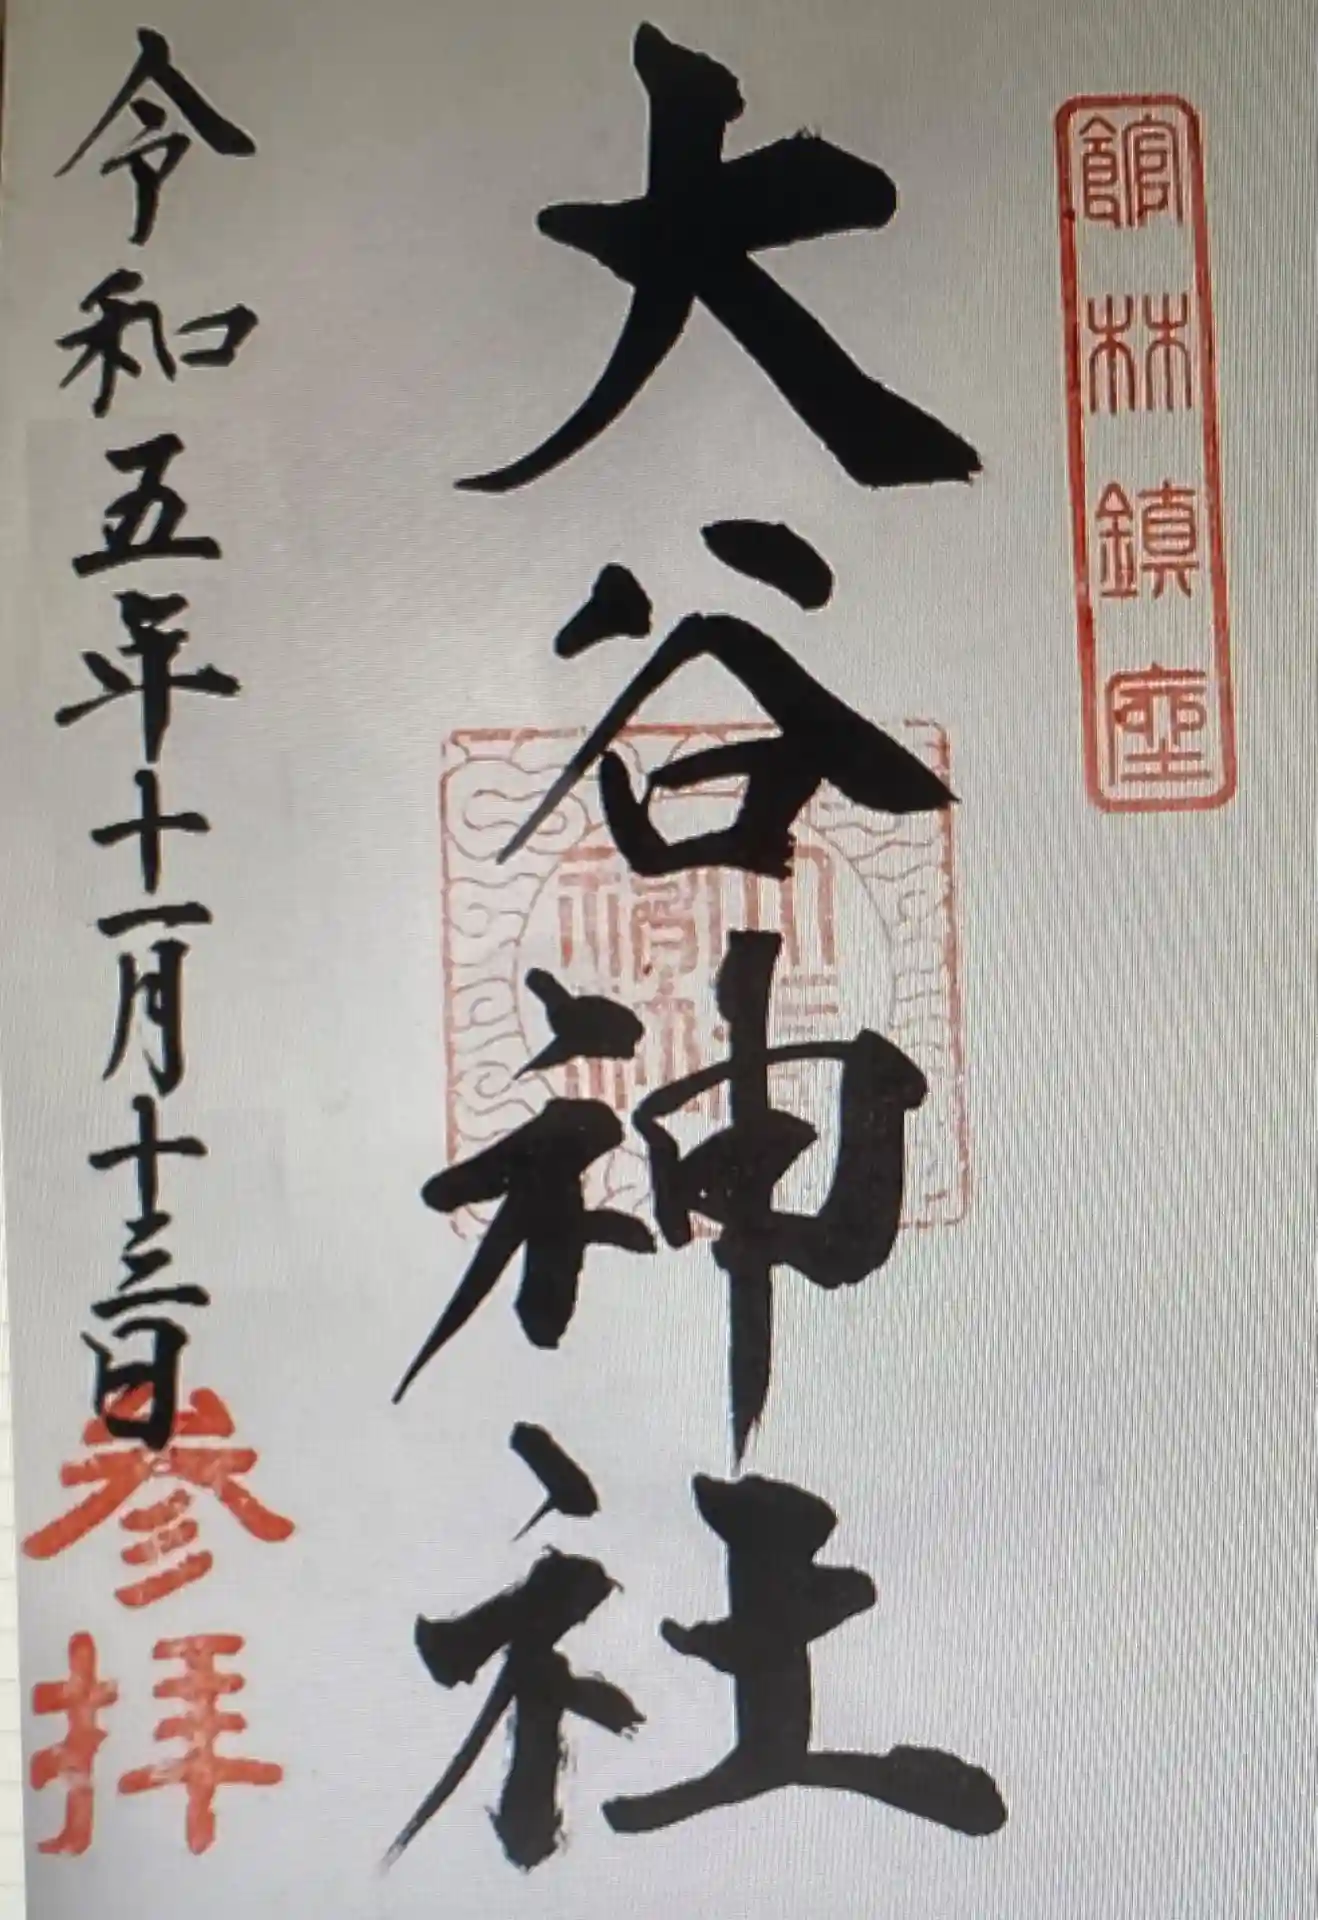 館林鎮座
大谷神社
令和五年十一月十三日
参拝